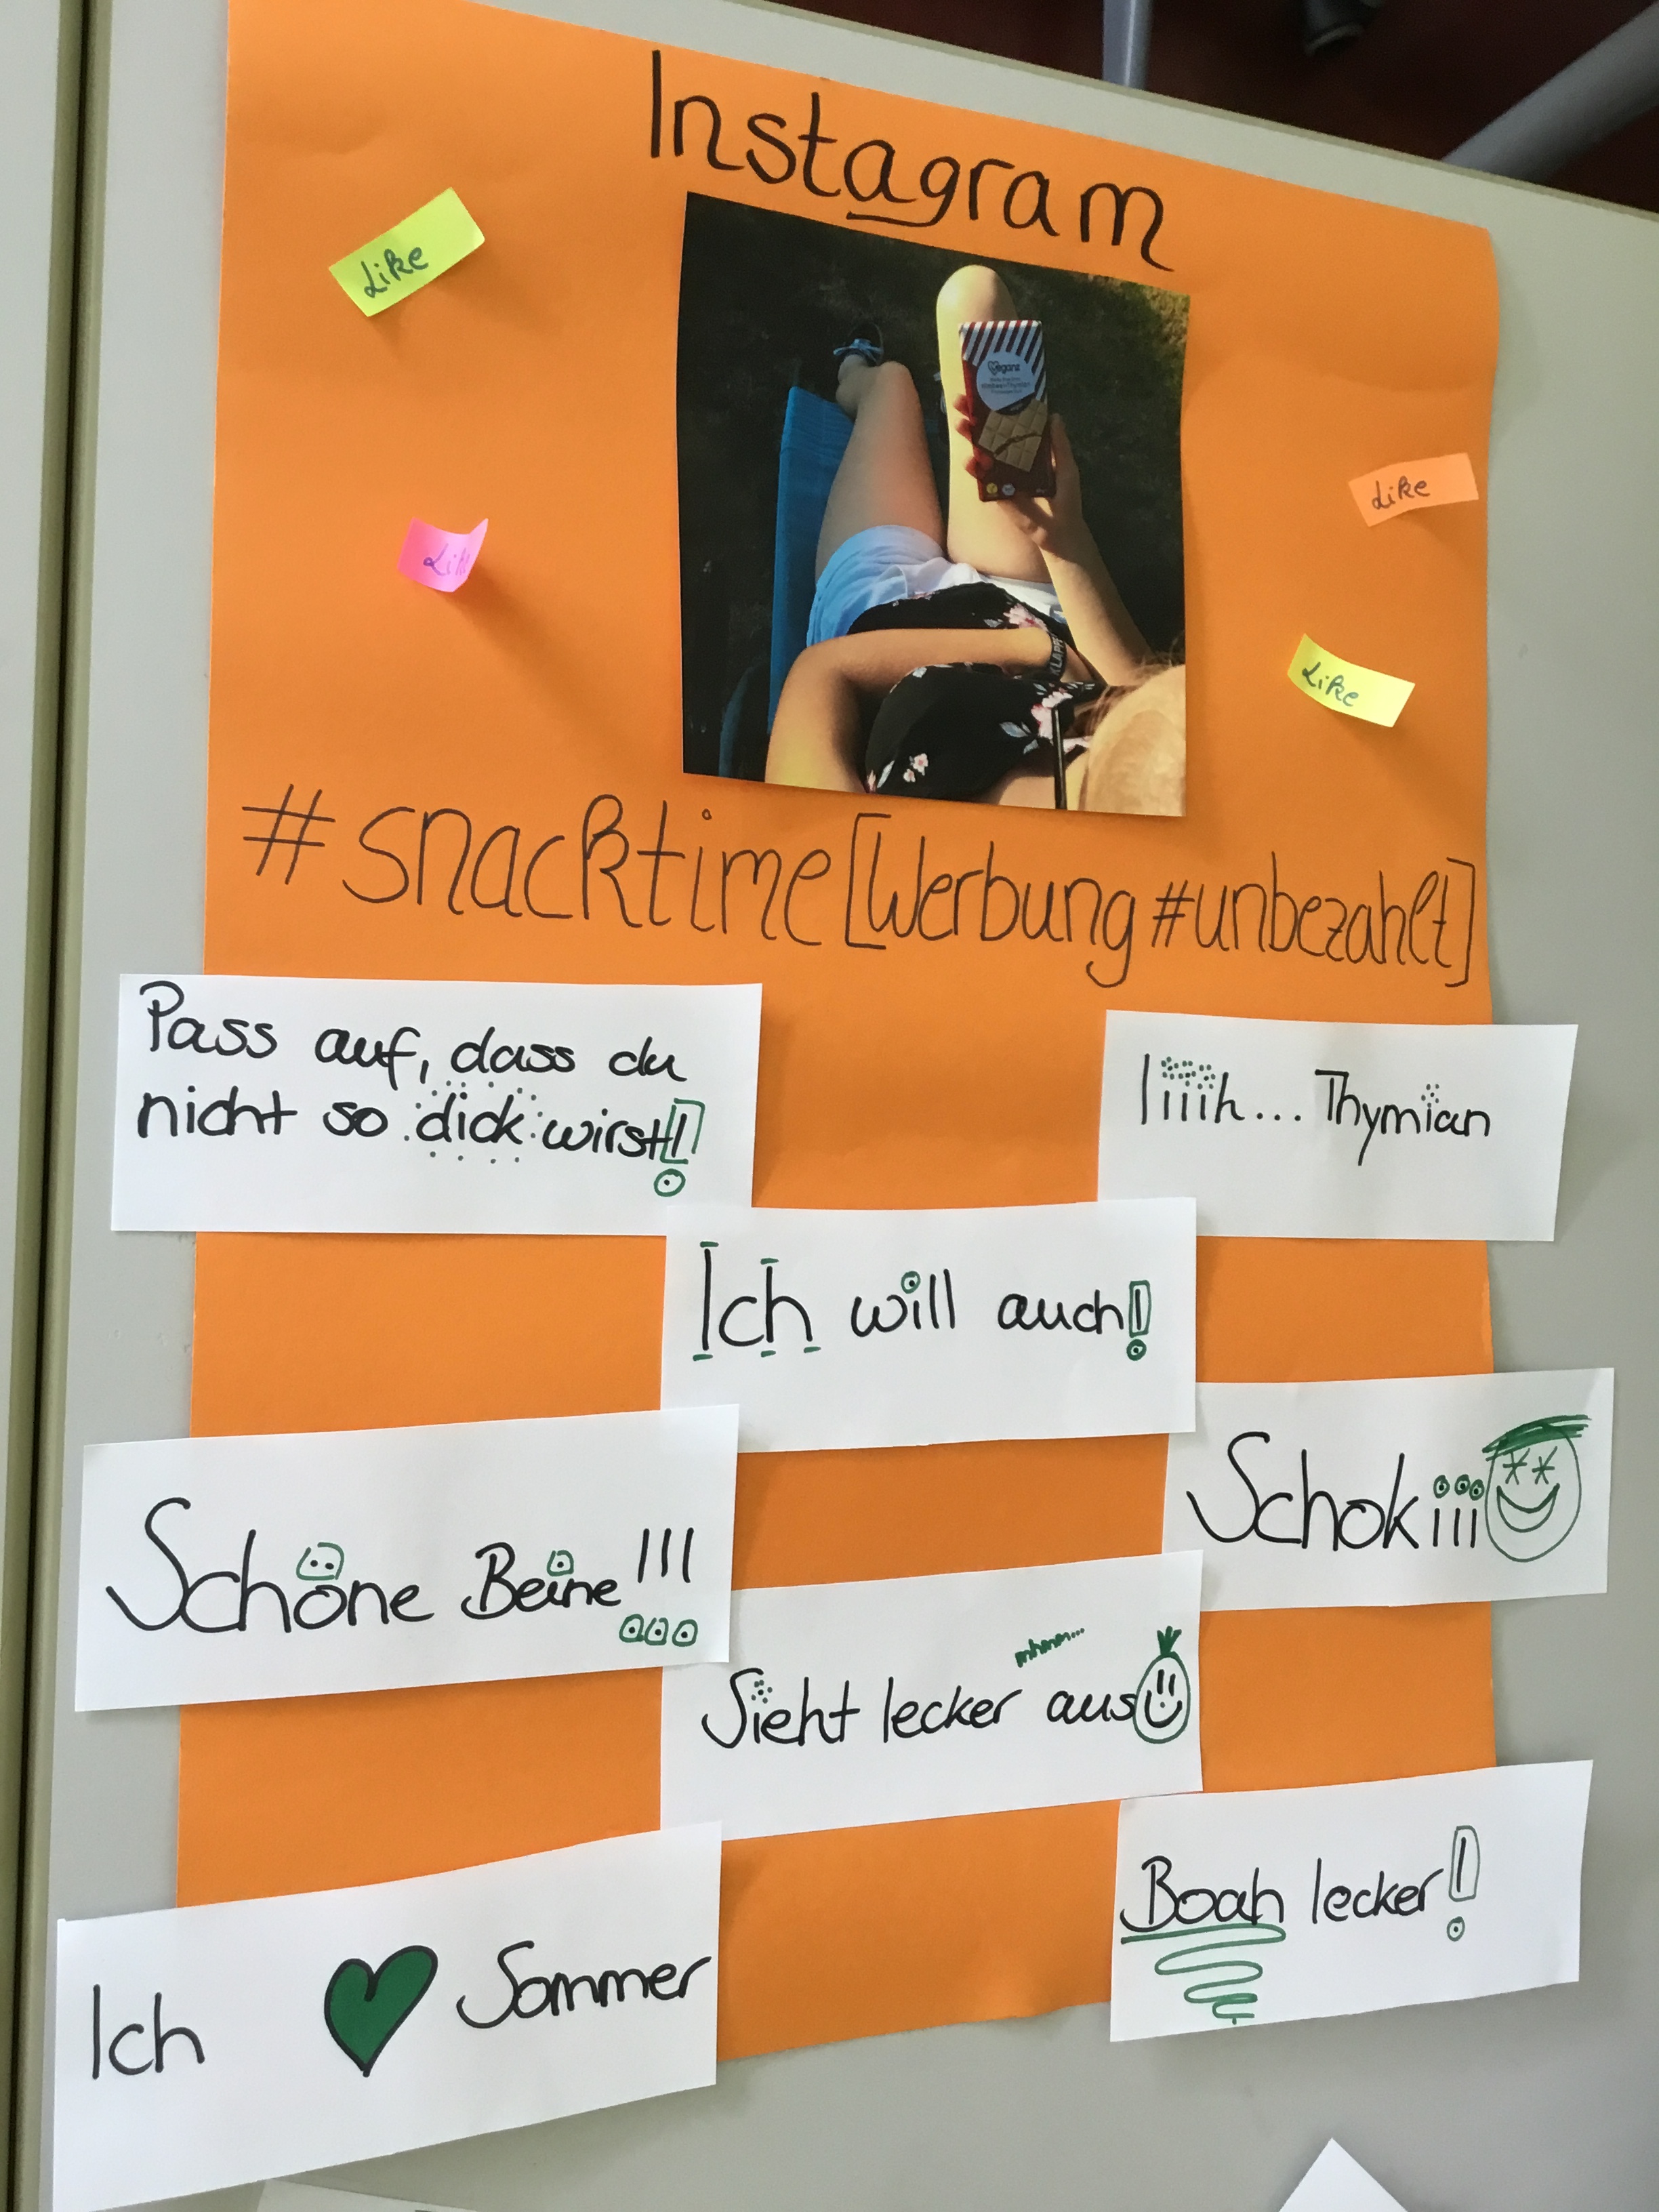 Instagram
Like
Like
Like
Like
Veganz
KLAPP
#snacktime [Werbung #unbezahlt]
Pass auf, dass du
nicht so dick wirst!
Iiiih... Thymian
Ich will auch!
Schöne Beine!!!
Schokiii
mhmm...
Sieht lecker aus
Boah lecker!
Ich ♥ Sommer